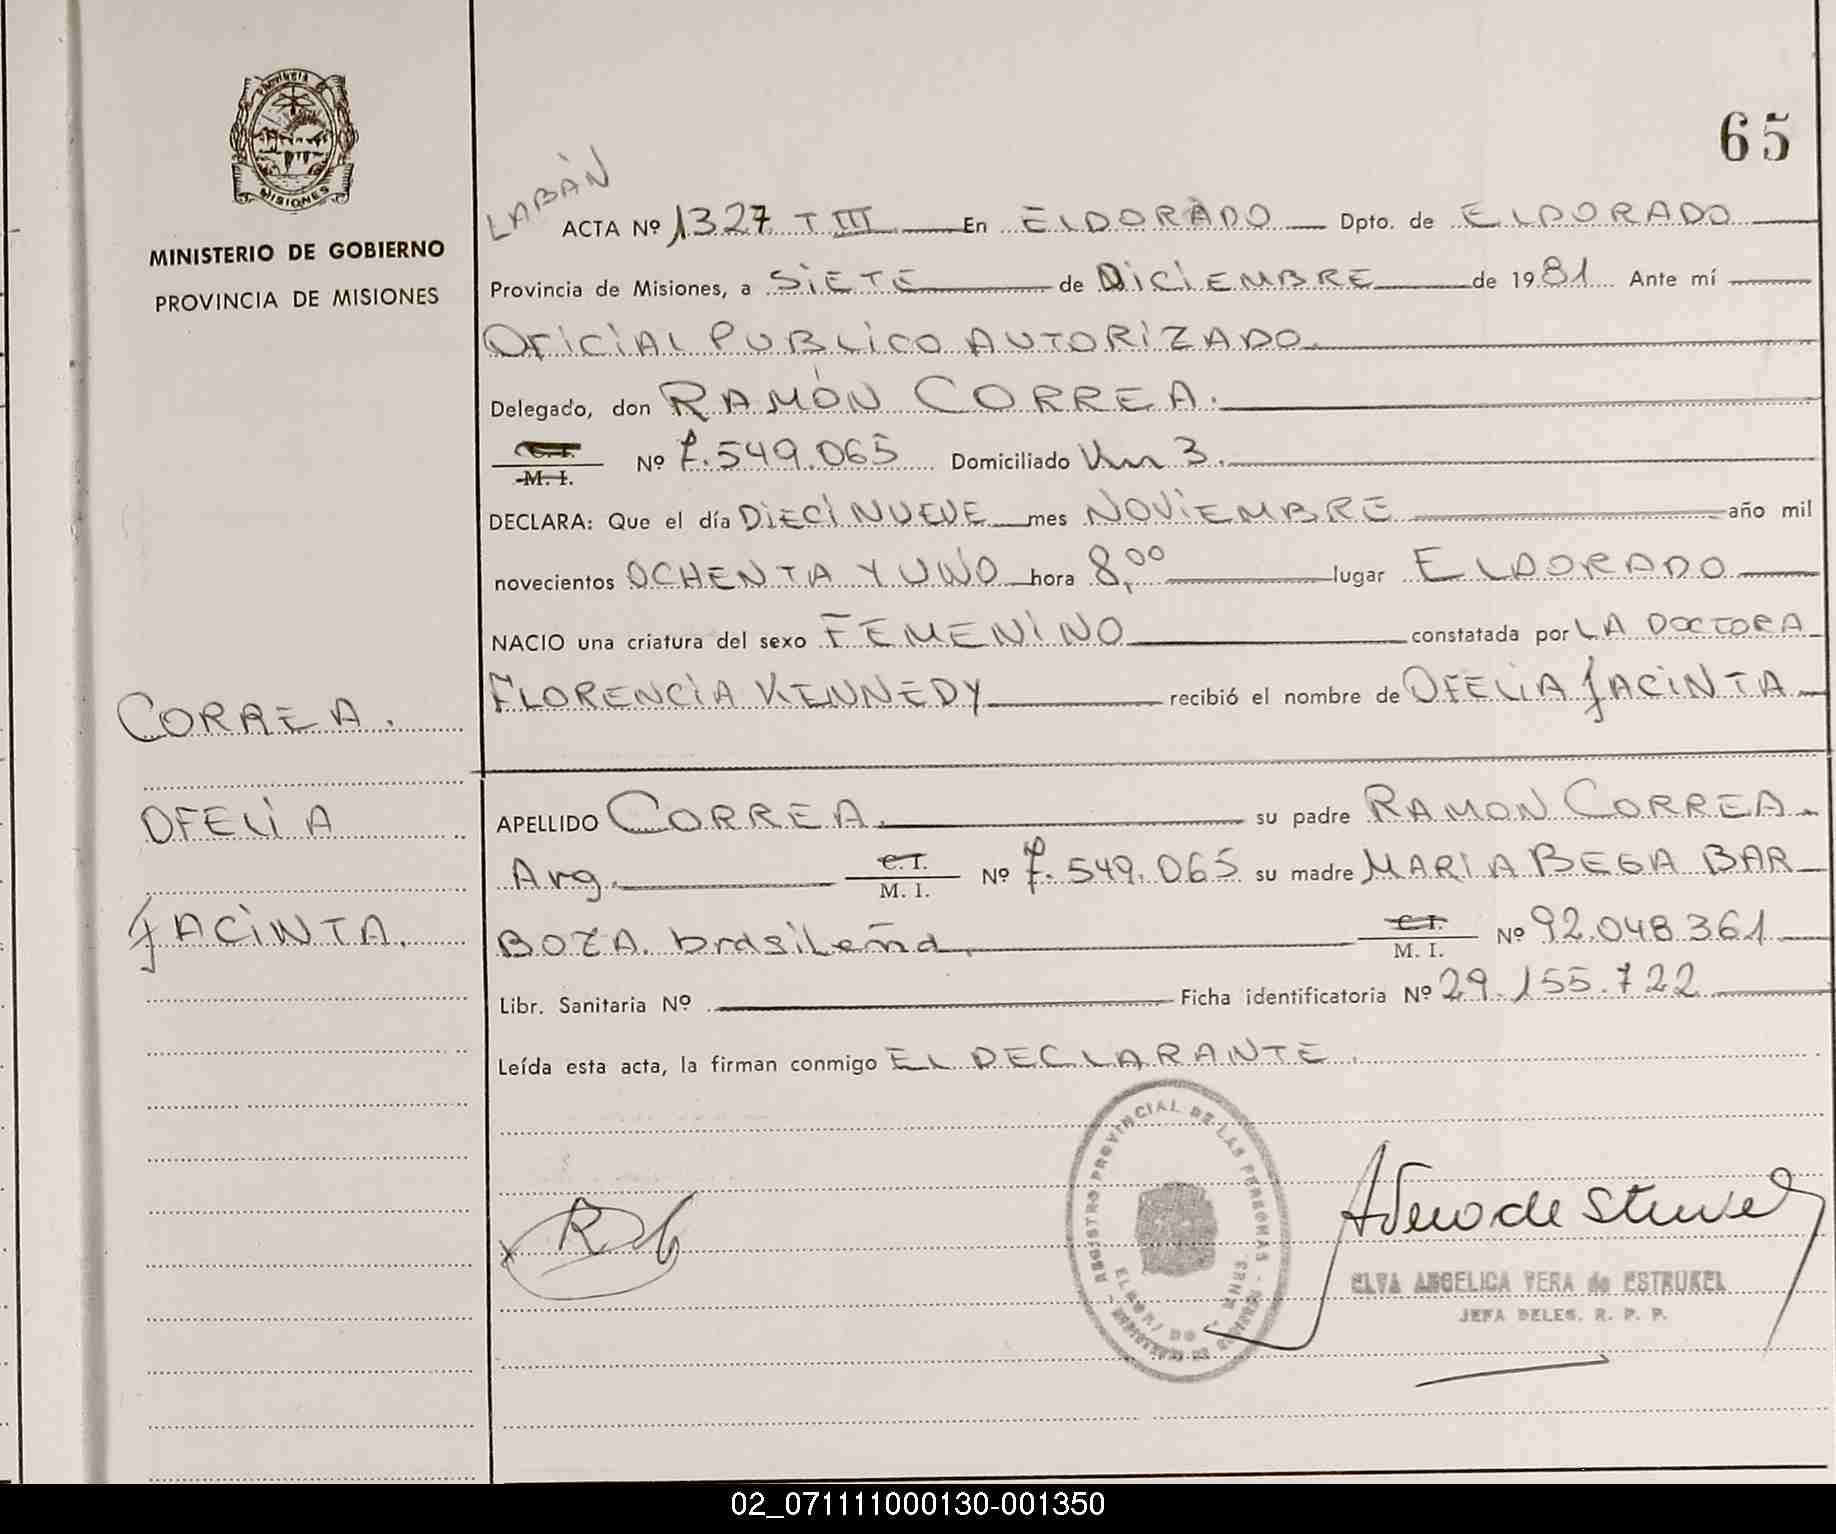 PROVINCIA
MISIONES
MINISTERIO DE GOBIERNO
PROVINCIA DE MISIONES
65
LABÁN
ACTA Nº 1327 T III En ELDORADO Dpto. de ELDORADO
Provincia de Misiones, a SIETE de DICIEMBRE de 1981 Ante mí
OFICIAL PUBLICO AUTORIZADO.
Delegado, don RAMÓN CORREA.
C.I.
M. I.
Nº 7.549.065 Domiciliado Km 3.
DECLARA: Que el día DIECINUEVE mes NOVIEMBRE año mil
novecientos OCHENTA Y UNO hora 8,00 lugar ELDORADO
NACIO una criatura del sexo FEMENINO constatada por LA DOCTORA
FLORENCIA KENNEDY recibió el nombre de OFELIA JACINTA
CORREA.
OFELIA
JACINTA.
APELLIDO CORREA. su padre RAMON CORREA.
Arg. C.I. M. I. Nº 7.549.065 su madre MARIA BEGA BAR
BOZA. brasileña, C.I. M. I. Nº 92.048.361
Libr. Sanitaria Nº Ficha identificatoria Nº 29.155.722
Leída esta acta, la firman conmigo EL DECLARANTE.
REGISTRO PROVINCIAL DE LAS PERSONAS
ELDORADO - MNES.
ELVA ANGELICA VERA de ESTRUKEL
JEFA DELEG. R. P. P.
02_071111000130-001350